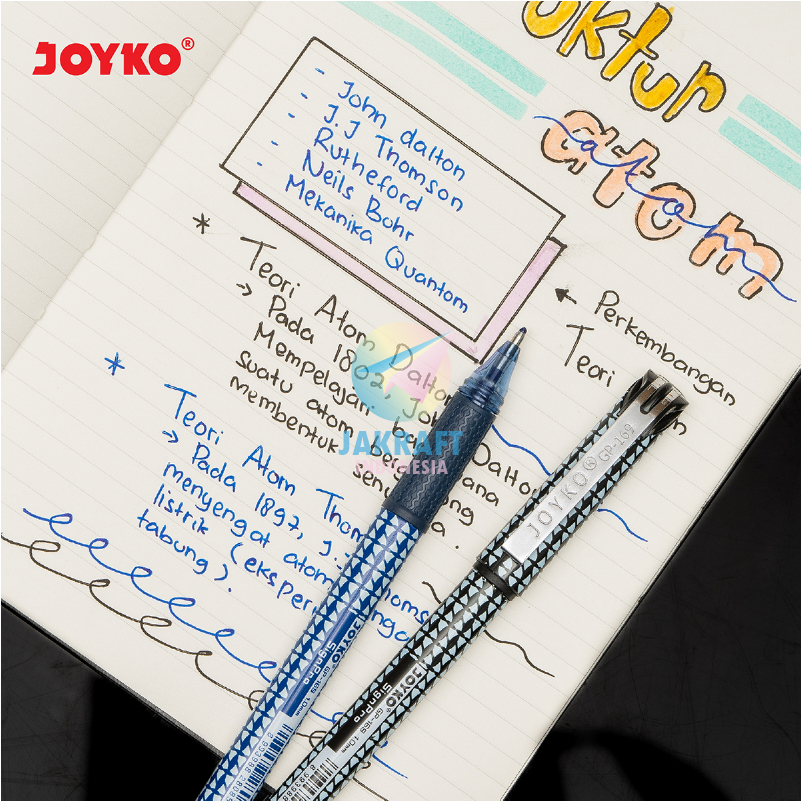 JOYKO®
uktur
atom
atom
- John dalton
- J.J Thomson
- Rutheford
- Neils Bohr
Mekanika Quantom
* Teori Atom Dalton
→ Pada 1802, Joh Dalton
Mempelajari bah ana
suatu atom berg ng
membentuk seny a.
← Perkembangan
Teori
* Teori Atom Thom
→ Pada 1897, J.J Thomson
menyengat atom
listrik (eksperi
tabung).
JAKRAFT
INDONESIA
JOYKO® GP-169
JOYKO®
SignPro
GP-169 1.0mm
JOYKO®
SignPro
GP-169 1.0mm